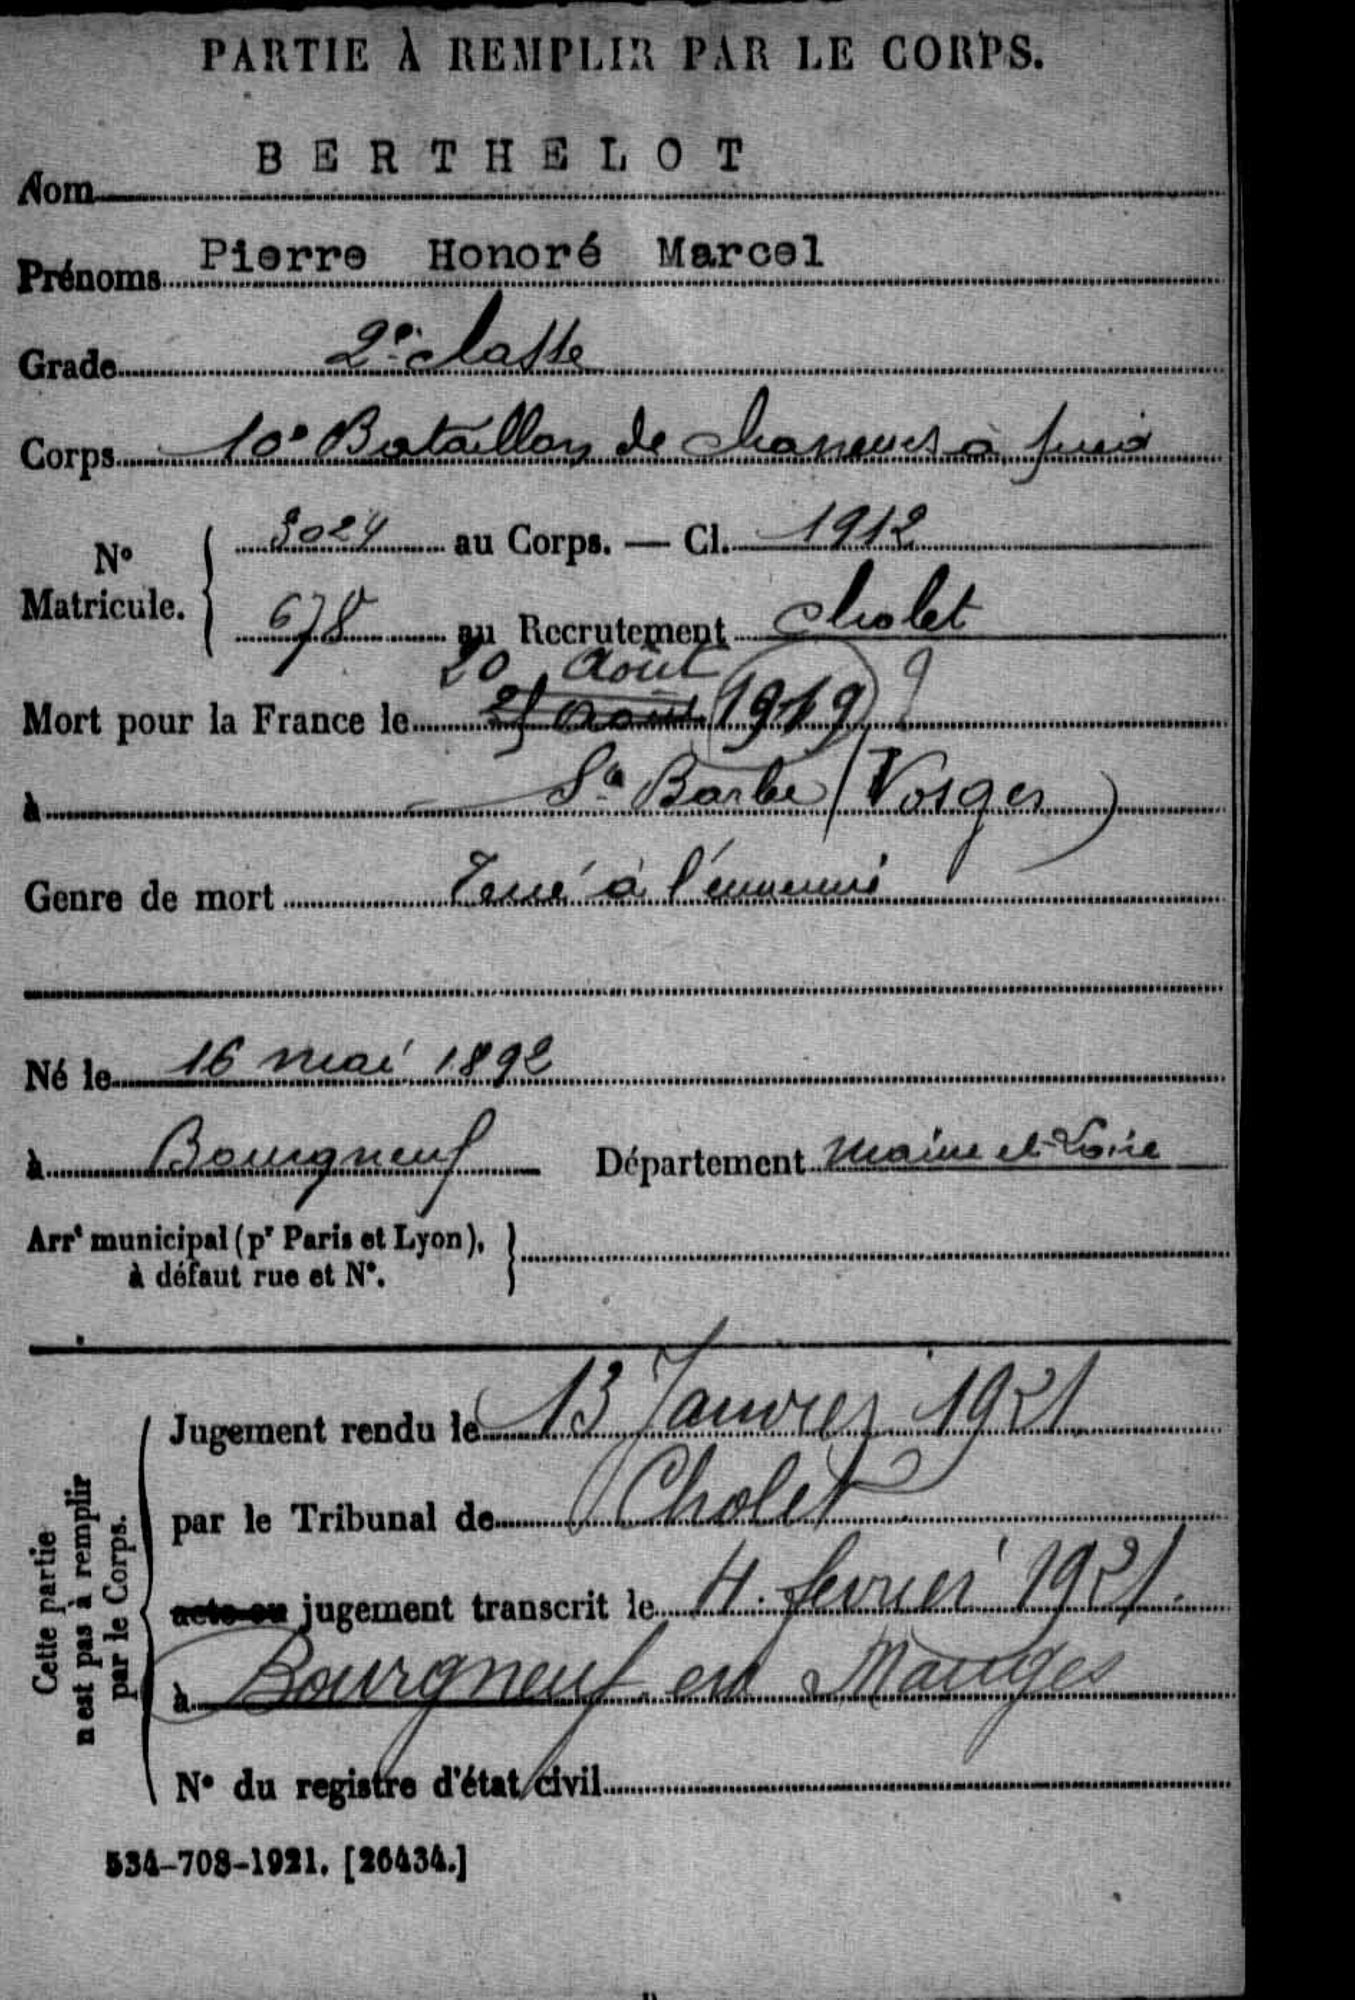 PARTIE À REMPLIR PAR LE CORPS.
BERTHELOT
Nom
Prénoms Pierre Honoré Marcel
Grade 2e classe
Corps 10e Bataillon de chasseurs à pied
N° Matricule. { 3024 au Corps. — Cl. 1912
678 au Recrutement Cholet
20 Août
Mort pour la France le 25 Août 1919 ?
à Ste Barbe (Vosges)
Genre de mort Tué à l'ennemi
Né le 16 mai 1892
à Bourgneuf Département Maine et Loire
Arrt municipal (pr Paris et Lyon), à défaut rue et N°. }
Cette partie n'est pas à remplir par le Corps.
Jugement rendu le 13 Janvier 1921
par le Tribunal de Cholet
acte ou jugement transcrit le 4. fevrier 1921.
à Bourgneuf en Mauges
N° du registre d'état civil
534-708-1921. [26434.]